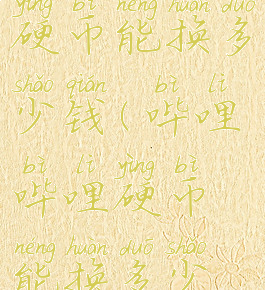 yìng bì néng huàn duō
硬币能换多
shǎo qián bì lī
少钱(哔哩
bì lī yìng bì
哔哩硬币
néng huàn duō shǎo
能换多少